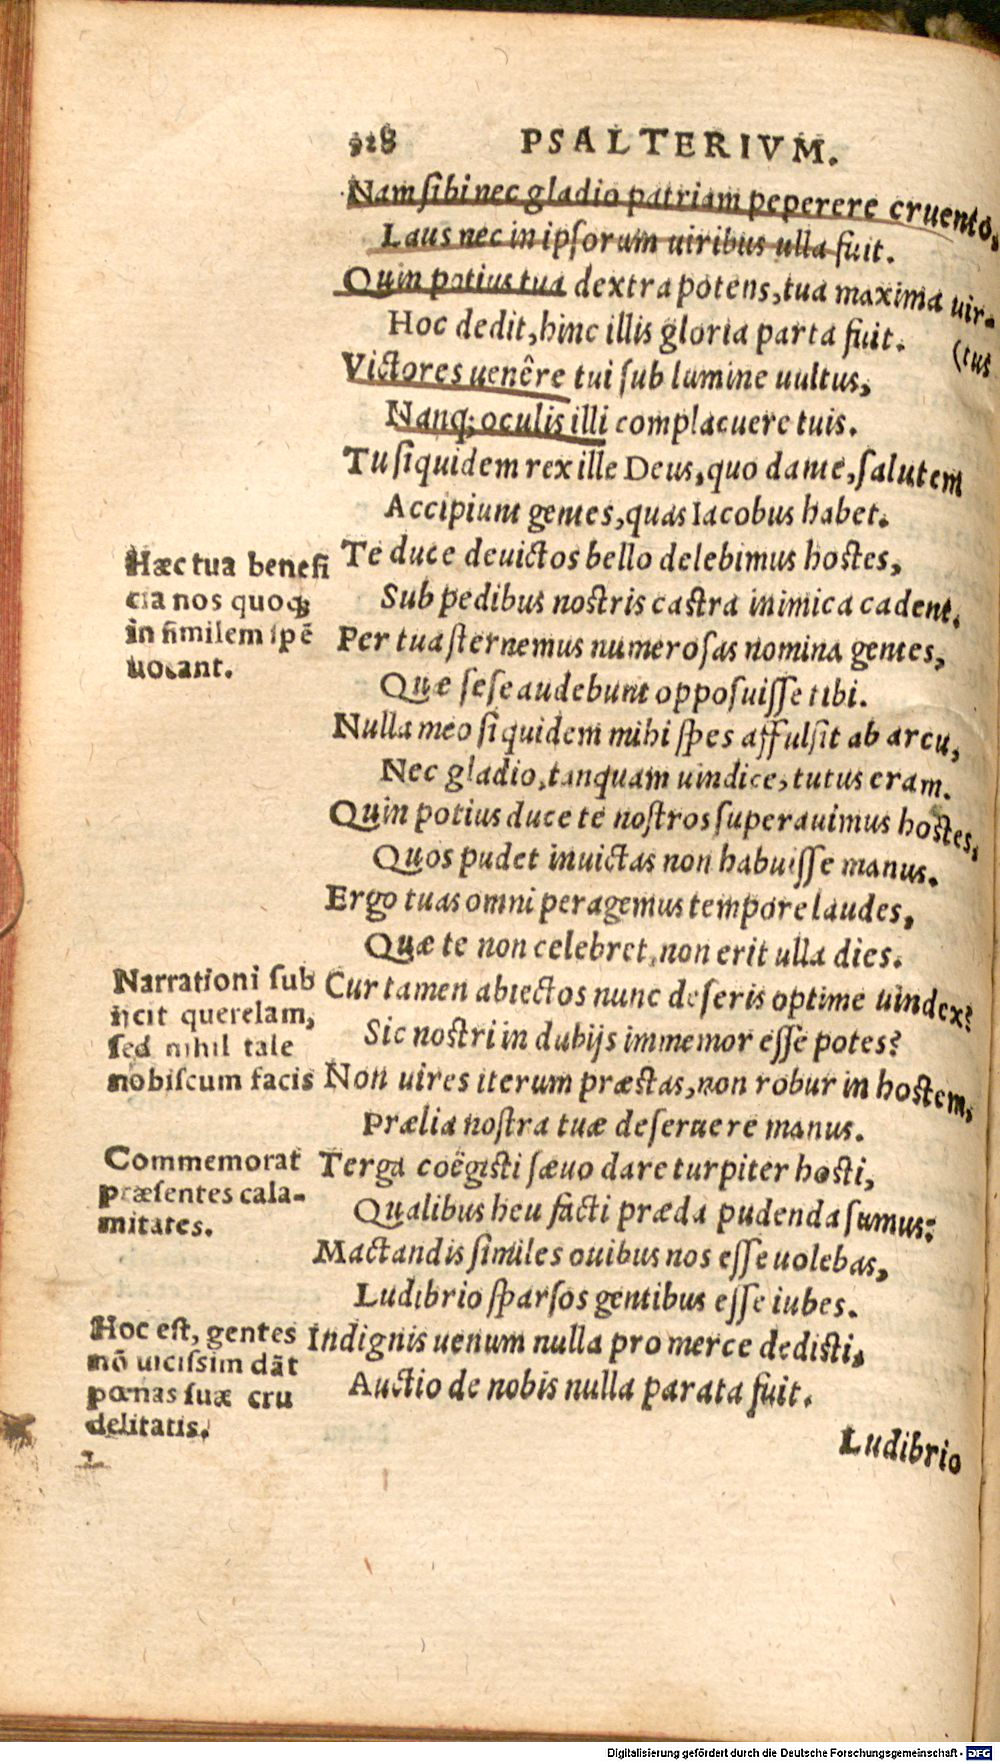 128 PSALTERIVM.
Nam ſibi nec gladio patriam peperere cruento,
Laus nec in ipſorum uiribus ulla fuit.
Quin potius tua dextra potens, tua maxima uir-
(tus
Hoc dedit, hinc illis gloria parta fuit.
Victores uenêre tui ſub lumine uultus,
Nanq; oculis illi complacuere tuis.
Tu ſiquidem rex ille Deus, quo dante, ſalutem
Accipiunt gentes, quas Iacobus habet.
Te duce deuictos bello delebimus hostes,
Sub pedibus nostris castra inimica cadent.
Per tua ſternemus numeroſas nomina gentes,
Quæ ſeſe audebunt oppoſuiſſe tibi.
Nulla meo ſiquidem mihi ſpes affulſit ab arcu,
Nec gladio, tanquam uindice, tutus eram.
Quin potius duce te noſtros ſuperauimus hostes,
Quos pudet inuictas non habuiſſe manus.
Ergo tuas omni peragemus tempore laudes,
Quæ te non celebret, non erit ulla dies.
Cur tamen abiectos nunc deſeris optime uindex?
Sic nostri in dubijs immemor eſſe potes?
Non uires iterum præstas, non robur in hostem,
Prælia noſtra tuæ deſeruere manus.
Terga coëgiſti ſæuo dare turpiter hoſti,
Qualibus heu facti præda pudenda ſumus?
Mactandis ſimiles ouibus nos eſſe uolebas,
Ludibrio ſparſos gentibus eſſe iubes.
Indignis uenum nulla pro merce dediſti,
Auctio de nobis nulla parata fuit.
Ludibrio
Hæc tua benefi
cia nos quoq;
in ſimilem ſpẽ
uocant.
Narrationi ſub
ijcit querelam,
ſed nihil tale
nobiſcum facis
Commemorat
præſentes cala-
mitates.
Hoc eſt, gentes
nõ uiciſsim dãt
pœnas ſuæ cru
delitatis.
Digitalisierung gefördert durch die Deutsche Forschungsgemeinschaft - DFG